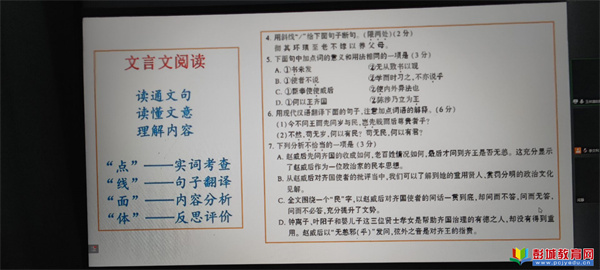 文言文阅读
读通文句
读懂文意
理解内容
“点”——实词考查
“线”——句子翻译
“面”——内容分析
“体”——反思评价
4. 用斜线“/”给下面句子断句。(限两处)(2分)
彻其环瑱至老不嫁以养父母。
5. 下面句中加点词的意义和用法相同的一项是(3分)
A. ①书未发 ②无从致书以观
B. ①使者不说 ②学而时习之，不亦说乎
C. ①群拳使使威后 ②便内外异法也
D. ①何以王齐国 ②陈涉乃立为王
6. 用现代汉语翻译下面的句子，注意加点词语的解释。(6分)
(1)今不问王而先问岁与民，岂先贱而后尊贵者乎？
(2)不然，苟无岁，何以有民？苟无民，何以有君？
7. 下列分析不恰当的一项是(3分)
A. 赵威后先问齐国的收成如何，老百姓情况如何，最后才问到齐王是否无恙。这充分显示
了赵威后作为一位政治家的民本思想。
B. 从赵威后对齐国使者的批评当中，我们可以了解到她的重用贤人、赏罚分明的政治文化
见解。
C. 全文围绕一个“民”字，以赵威后对齐国使者的问话一贯到底，却问而不答，问而无答，
问而不必答，充分提升了文势。
D. 钟离子、叶阳子和婴儿子这三位贤士孝女是帮助齐国治理的有德之人，却没有得到重
用。赵威后以“无恙邪(乎)”发问，弦外之音是对齐王的指责。
彭城教育网
www.pcjyedu.cn